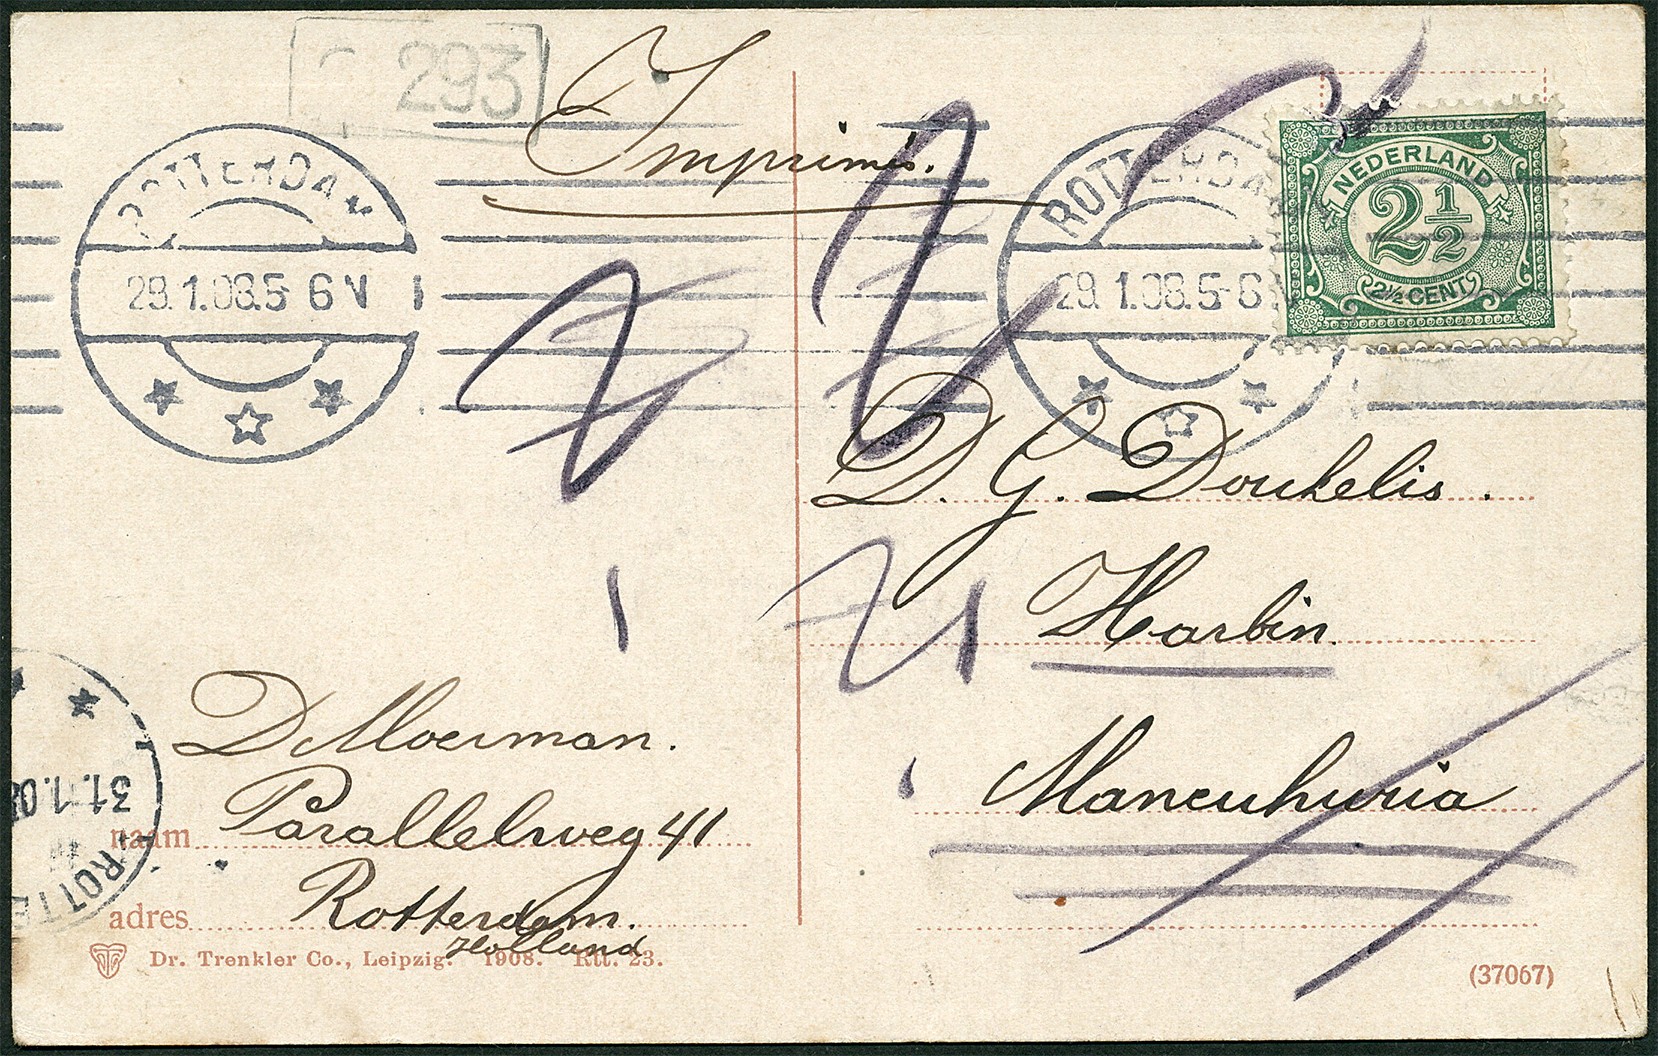 293
Imprimés.
ROTTERDAM
29.1.08.5-6 V
1
ROTTERDA
29.1.08.5-6
NEDERLAND
2 1/2
2½ CENT
D. G. Doukelis.
Harbin.
Mancuhuria
D Moerman.
naam Parallelweg 41
adres Rotterdam.
Holland
31.1.08
ROTTE
Dr. Trenkler Co., Leipzig. 1908. Rtt. 23.
(37067)